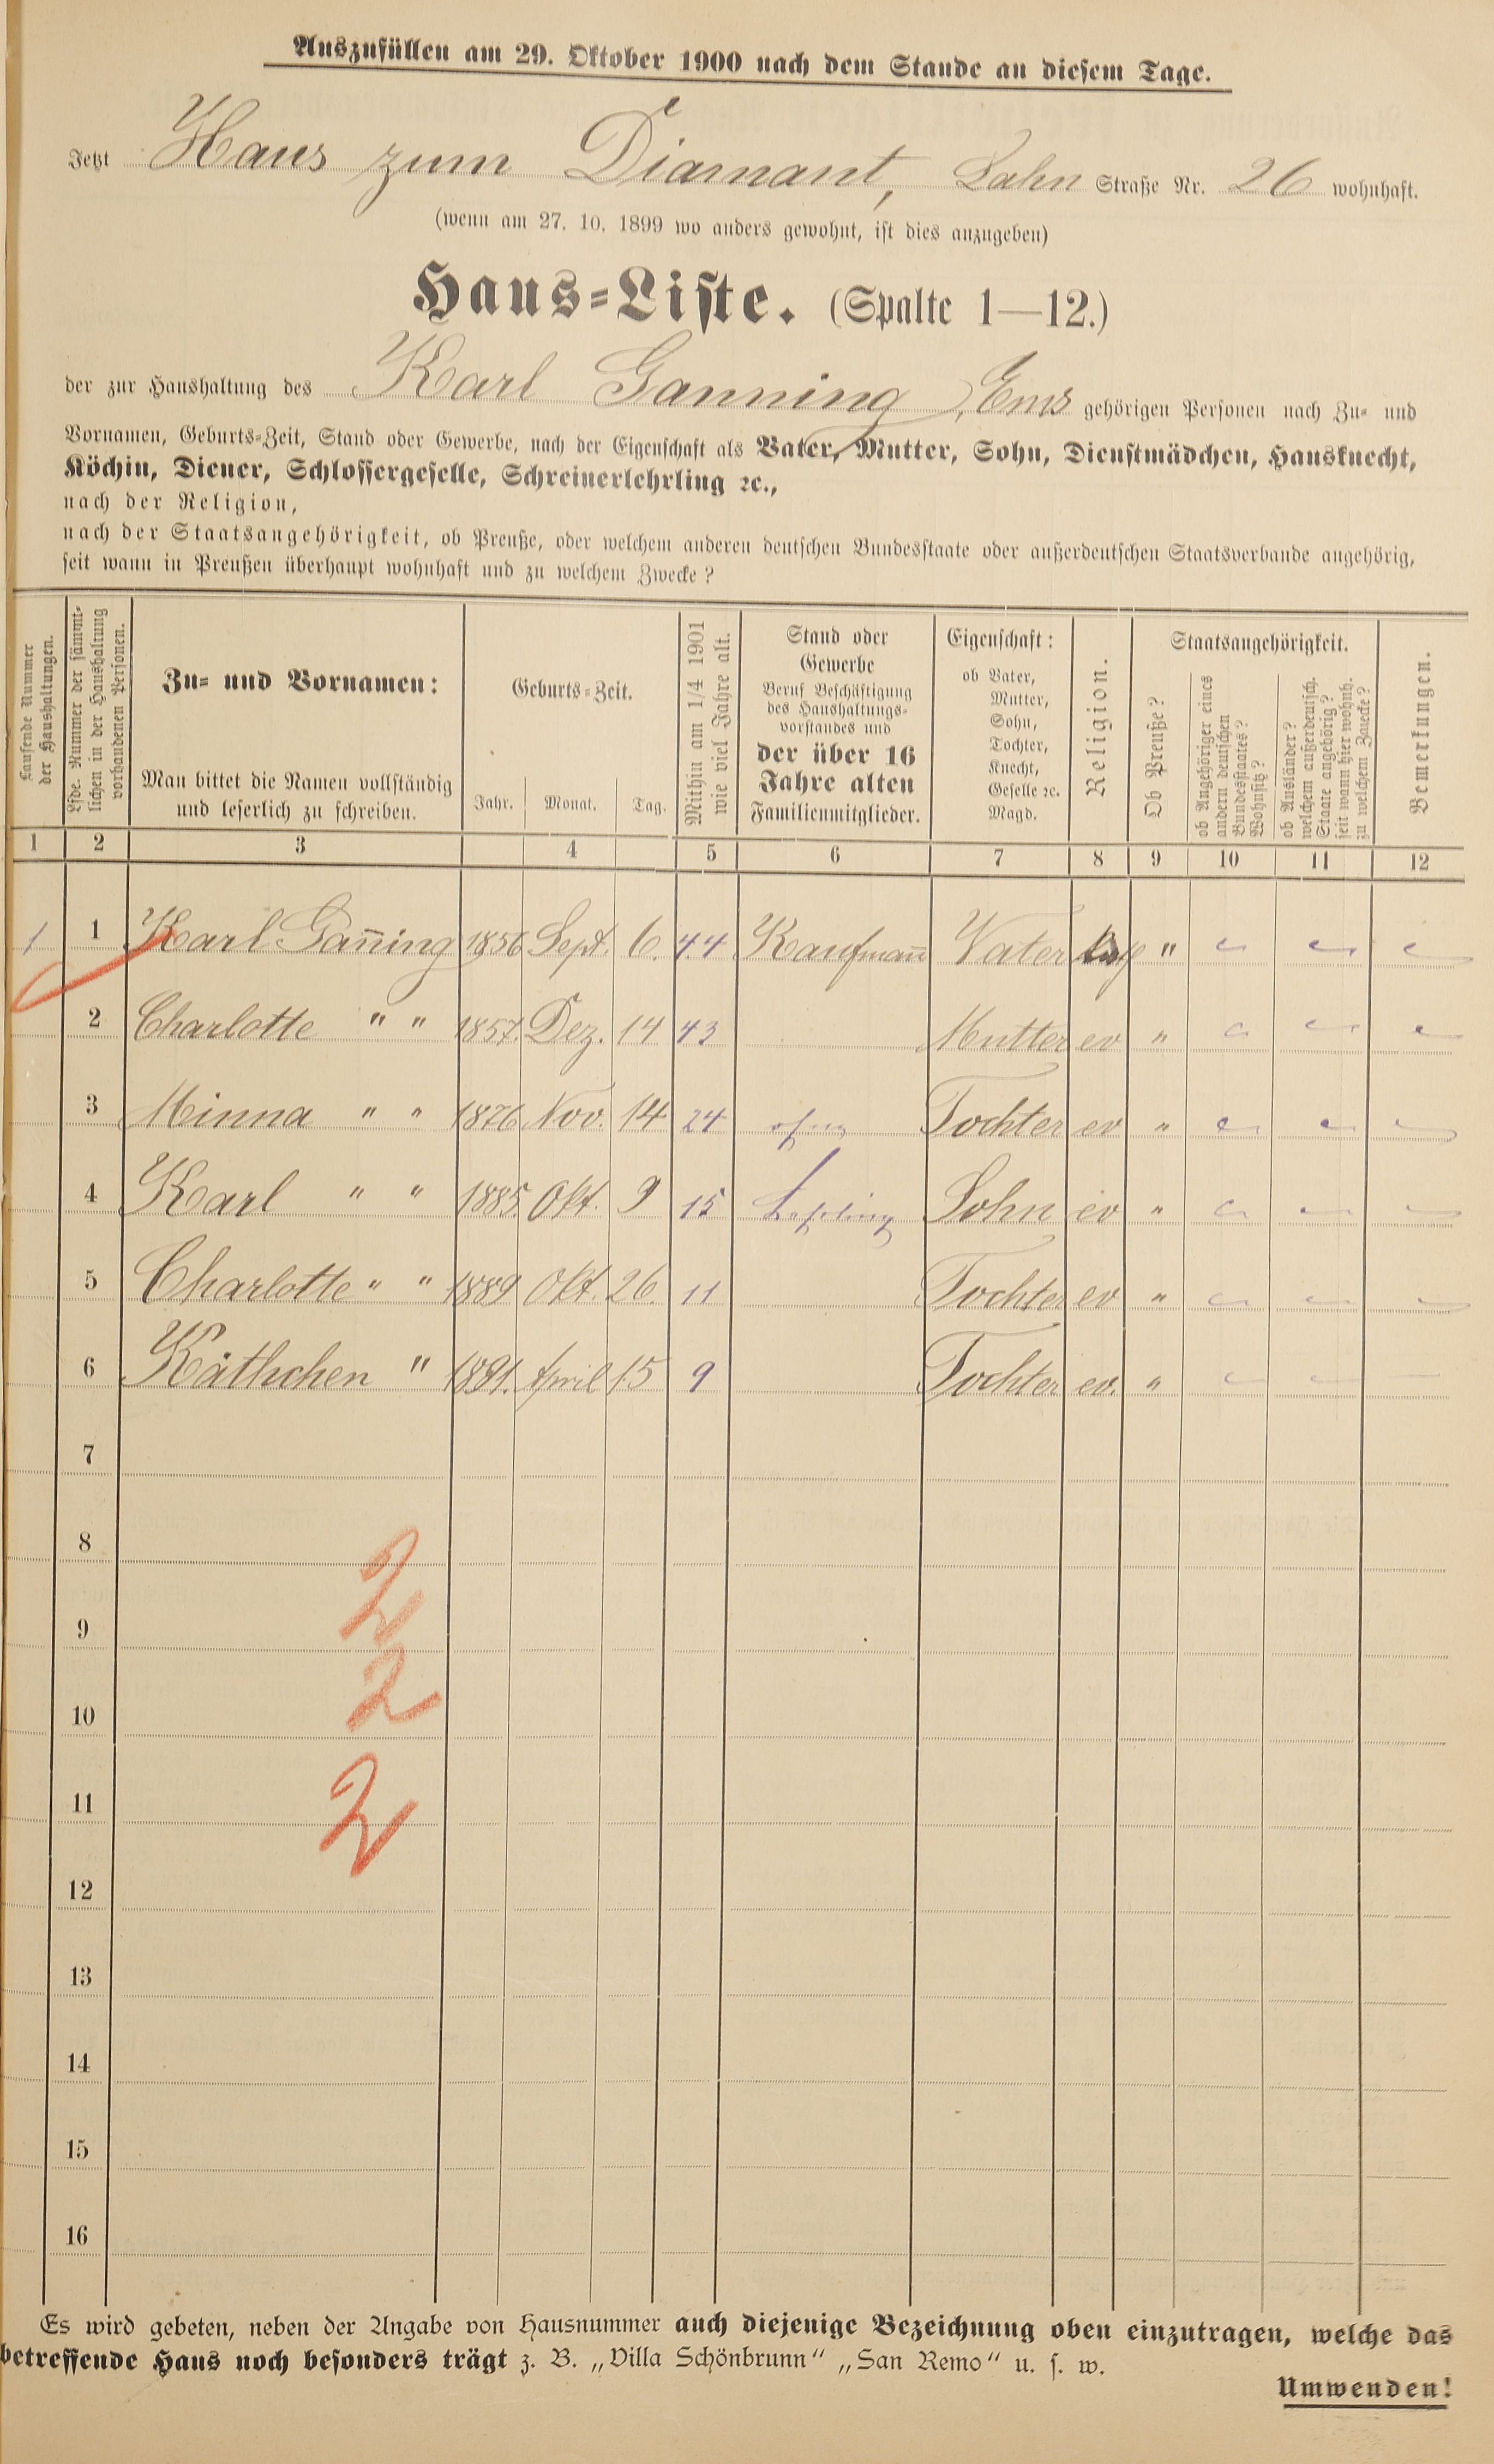 Auszufüllen am 29. Oktober 1900 nach dem Stande an diesem Tage.
Jetzt Haus zum Diamant, Lahn Straße Nr. 26 wohnhaft.
(wenn am 27. 10. 1899 wo anders gewohnt, ist dies anzugeben)
Haus-Liste. (Spalte 1—12.)
der zur Haushaltung des Karl Ganning, Ems gehörigen Personen nach Zu- und
Vornamen, Geburts-Zeit, Stand oder Gewerbe, nach der Eigenschaft als Vater, Mutter, Sohn, Dienstmädchen, Hausknecht,
Köchin, Diener, Schlossergeselle, Schreinerlehrling ꝛc.,
nach der Religion,
nach der Staatsangehörigkeit, ob Preuße, oder welchem anderen deutschen Bundesstaate oder außerdeutschen Staatsverbande angehörig,
seit wann in Preußen überhaupt wohnhaft und zu welchem Zwecke?
Laufende Nummer
der Haushaltungen.
Lfde. Nummer der sämmt-
lichen in der Haushaltung
vorhandenen Personen.
Zu- und Vornamen:
Man bittet die Namen vollständig
und leserlich zu schreiben.
Geburts-Zeit.
Jahr. Monat. Tag.
Mithin am 1/4 1901
wie viel Jahre alt.
Stand oder
Gewerbe
Beruf Beschäftigung
des Haushaltungs-
vorstandes und
der über 16
Jahre alten
Familienmitglieder.
Eigenschaft:
ob Vater,
Mutter,
Sohn,
Tochter,
Knecht,
Geselle ꝛc.
Magd.
Religion.
Staatsangehörigkeit.
Ob Preuße?
ob Angehöriger eines
andern deutschen
Bundesstaates?
Wohnsitz?
ob Ausländer?
welchem außerdeutsch.
Staate angehörig?
seit wann hier wohnh.
zu welchem Zwecke?
Bemerkungen.
1 2 3 4 5 6 7 8 9 10 11 12
1 1 Karl Gan̄ing 1856 Sept. 6. 44 Kaufman̄ Vater "
2 Charlotte " " 1857. Dez. 14 43 Mutter ev "
3 Minna " " 1876 Nov. 14 24 ohne Tochter ev "
4 Karl " " 1885 Okt. 9 15 Lehrling Sohn ev "
5 Charlotte " " 1889 Okt. 26. 11 Tochter ev "
6 Käthchen " 1891. April 15 9 Tochter ev. "
7
8
2
9
2
10
11
2
12
13
14
15
16
Es wird gebeten, neben der Angabe von Hausnummer auch diejenige Bezeichnung oben einzutragen, welche das
betreffende Haus noch besonders trägt z. B. „Villa Schönbrunn" „San Remo" u. s. w.
Umwenden!